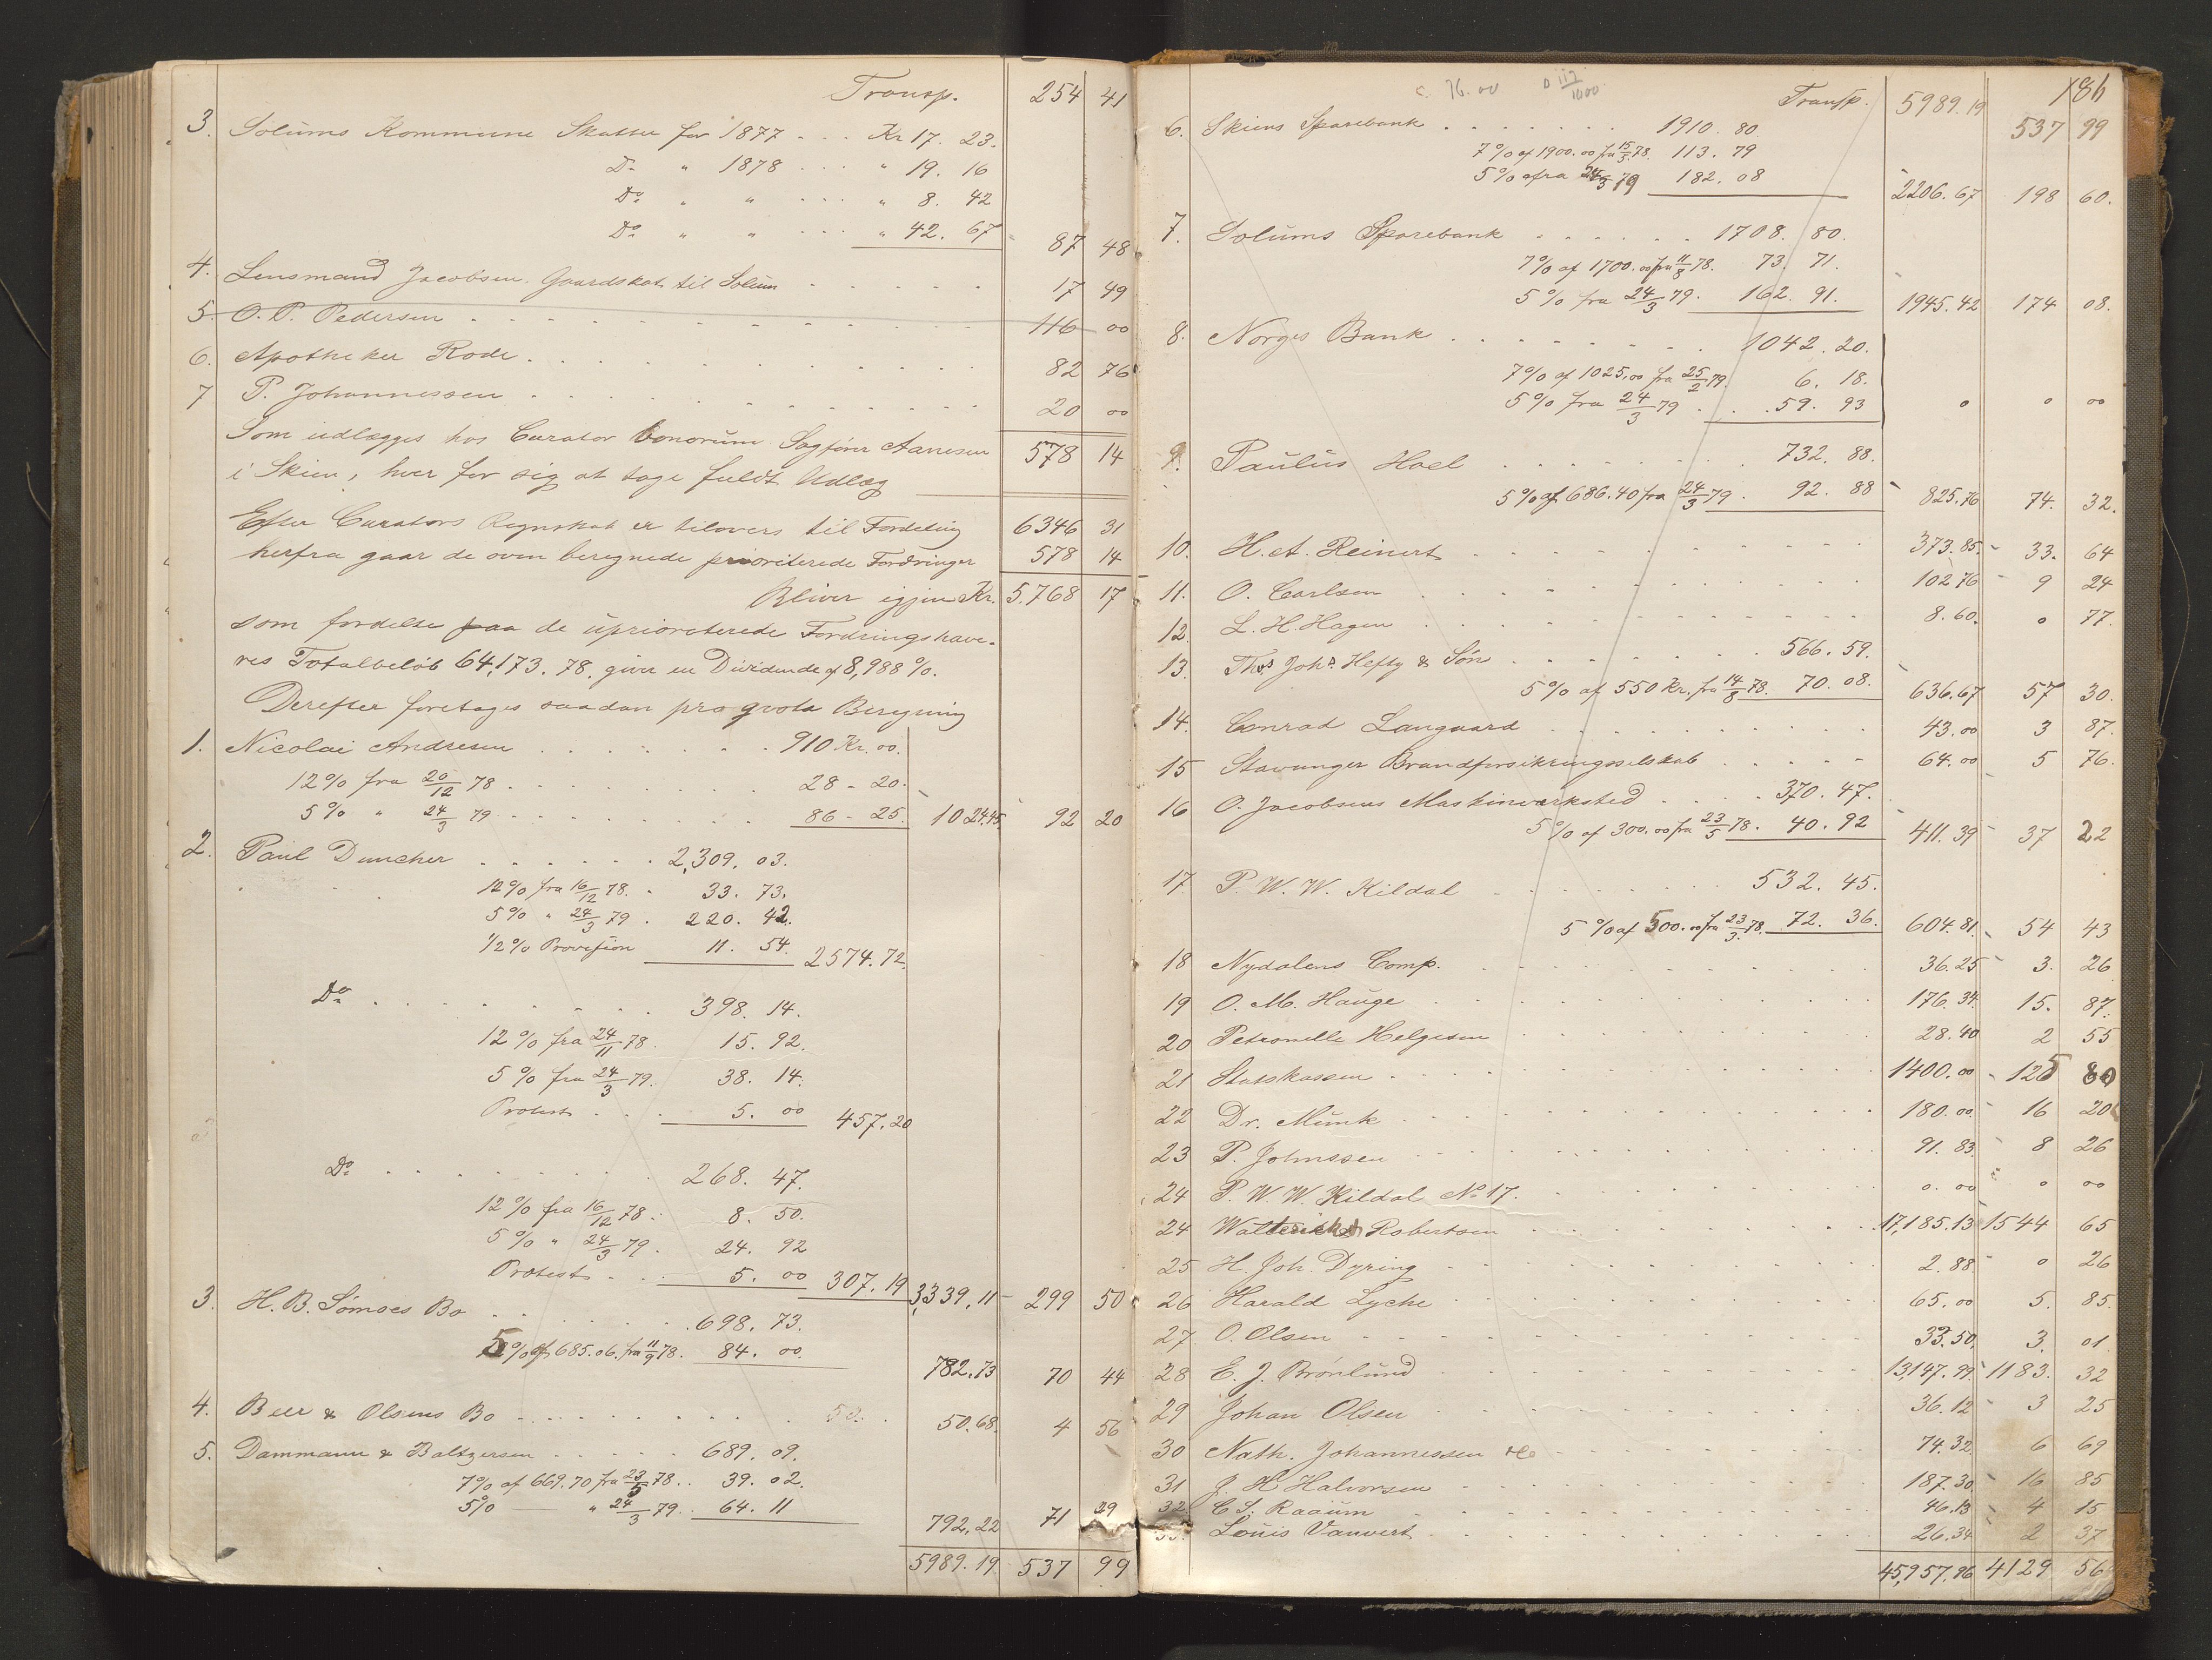 Transp. 254 41
3. Solums Kommune Skatter for 1877 . . . Kr 17. 23.
Do " 1878 . . . " 19. 16
Do " " . . . " 8. 42
Do " " . . . " 42. 67 87 48
4. Lensmand Jacobsen. Gaardskat til Solum . . . . . 17 49
5. O. P. Pedersen . . . . . . . . . . 116 00
6. Apotheker Rode . . . . . . . . . . 82 76
7 P. Johannessen . . . . . . . . . . 20 00
Som udlægges hos Curator bonorum Sagfører Aanesen 578 14
i Skien, hver for sig at tage fuldt Udlæg
Efter Curators Regnskab er tilovers til Fordeling 6346 31
herfra gaar de oven beregnede prioriterede Fordringer 578 14
Bliver igjen Kr. 5.768 17
som fordelte paa de uprioriterede Fordringshave-
res Totalbeløb 64,173.78. giver en Dividende af 8,988 %.
Derefter foretages saadan pro qvota Beregning
1. Nicolai Andresen . . . . . . . 910 Kr. 00.
12% fra 20/12 78 . . . . . . . 28 - 20.
5% " 24/3 79 . . . . . . . 86 - 25. 1024.45 92 20
2. Paul Duncker . . . . . . 2,309. 03.
12% fra 16/12 78. . 33. 73.
5% " 24/3 79 . 220. 42.
1/2% Provision 11. 54. 2574.72.
Do . . . . . . . . 398. 14.
12% fra 24/11 78. 15. 92.
5% fra 24/3 79. 38. 14.
Protest . . . 5. 00 457.20
Do . . . . . . . . 268. 47.
12% fra 16/12 78. 8. 50.
5% " 24/3 79. 24. 92
Protest . . . 5. 00 307.19 3,339,11 299 50
3. H. B. Sømoes Bo . . . . . . . 698. 73.
5% af 685.06. fra 11/9 78. 84. 00. 782.73 70 44
4. Beer & Olsens Bo . . . . . . . . . 50.68. 4 56
5. Dammann & Baltzersen . . . . . 689. 09.
7% af 669.70 fra 23/5 78 . . 39. 02.
5% " 24/3 79. 64. 11 792,22 71 29
5989.19 537 99
186
c. 76.00 D 117/1000
Transp. 5989.19 537 99
6. Skiens Sparebank . . . . . . . 1910. 80
7% af 1900.00 fra 15/5 78. 113. 79
5% fra 24/3 79 182. 08 2206.67 198 60.
7. Solums Sparebank . . . . . . 1708. 80.
7% af 1700.00 fra 11/8 78. 73. 71.
5% fra 24/3 79. 162. 91. 1945.42 174 08.
8. Norges Bank . . . . . . . . 1042. 20.
7% af 1025.00 fra 25/2 79. 6. 18.
5% fra 24/3 79 . . . 59. 93 0 0 00
9. Paulus Hoel . . . . . . . . 732. 88.
5% af 686.40 fra 24/3 79. 92. 88 825.76 74. 32.
10. H. A. Reinert . . . . . . . . . 373.85. 33. 64
11. O. Carlsen . . . . . . . . . . 102 76 9 24
12. L. H. Hagen . . . . . . . . . . 8.60. 0 77.
13. Ths Johs Hefty & Søn . . . . . . . 566. 59.
5% af 550 Kr. fra 14/8 78. 70. 08. 636.67 57 30.
14. Conrad Langaard . . . . . . . . 43.00 3 87.
15 Stavanger Brandforsikringsselskab . . . . . 64.00 5 76.
16 O. Jacobsens Maskinværksted . . . . 370. 47.
5% af 300.00 fra 23/5 78. 40. 92 411.39 37 22
17 P. W. W. Kildal . . . . . . . . 532. 45.
5% af 500.00 fra 23/3 78. 72. 36. 604.81. 54 43
18 Nydalens Comp. . . . . . . . . . 36.25 3. 26
19 O. M. Hauge . . . . . . . . . . 176.34. 15. 87.
20 Petronelle Helgesen . . . . . . . . 28.40 2 55
21 Statskassen . . . . . . . . . . 1400.00 125 80
22 Dr. Munk . . . . . . . . . . 180.00 16 20
23 P. Johnssen . . . . . . . . . . 91. 83 8 26
24 P. W. W. Kildal No 17. . . . . . . . 0.00 0 00
24 Robertsen . . . . . . . . 17,185.13 1544 65
25 H. Joh. Dyring . . . . . . . . . 2.88 0 26
26 Harald Lyche . . . . . . . . . 65.00 5. 85.
27 O. Olsen . . . . . . . . . . 33.50. 3. 01
28 E. J. Brønlund . . . . . . . . . 13,147.99. 1183. 32
29 Johan Olsen . . . . . . . . . 36.12 3 25
30 Nath. Johannessen & Co . . . . . . . 74.32 6 69
31 J. H Halvorsen . . . . . . . . . 187.30 16 85
32 C. S. Raaum . . . . . . . . . 46.13 4 15
33. Louis Vauvert . . . . . . . . . 26.34 2 37
45,957,96 4129 56